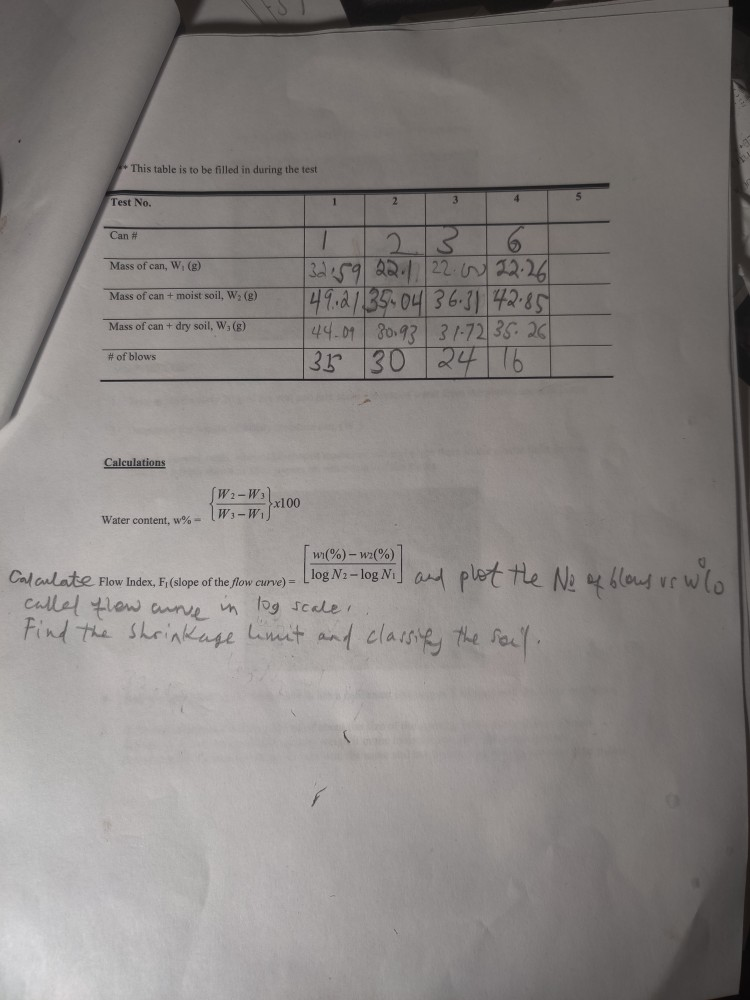 ** This table is to be filled in during the test
Test No. 1 2 3 4 5
Can # 1 2 3 6
Mass of can, W1 (g) 32.59 22.1 22.00 22.26
Mass of can + moist soil, W2 (g) 49.21 35.04 36.31 42.85
Mass of can + dry soil, W3 (g) 44.09 30.93 31.72 35.26
# of blows 35 30 24 16
Calculations
Water content, w% = {W2 – W3 / W3 – W1} x100
Calculate Flow Index, F1 (slope of the flow curve) = [w1(%) – w2(%) / log N2 – log N1] and plot the No of blows vs w%
called flow curve in log scale.
Find the shrinkage limit and classify the soil.